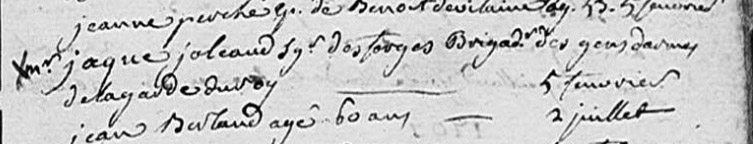 jeanne perche ve. de Benoit devilaine ag. 53. 5 feuvrier
Xmr. jaque joleaud Sgr. des forges Brigadr. des gens darmes
de la garde du roy ——— 5 feuvrier
jean Berland agé 60 ans — 2 juillet